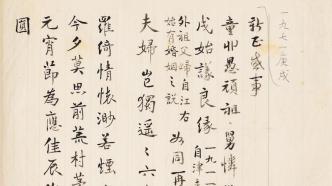 一九七一庚戌
新正感事
童丱愚頑祖舅憐
成始議良緣
一九一
自津
外祖父歸自江右
始有婚姻之說
如同再
夫婦豈獨遥六
羅綺情懷渺若煙
今夕莫思前蕪村
元宵節為應佳辰
圓